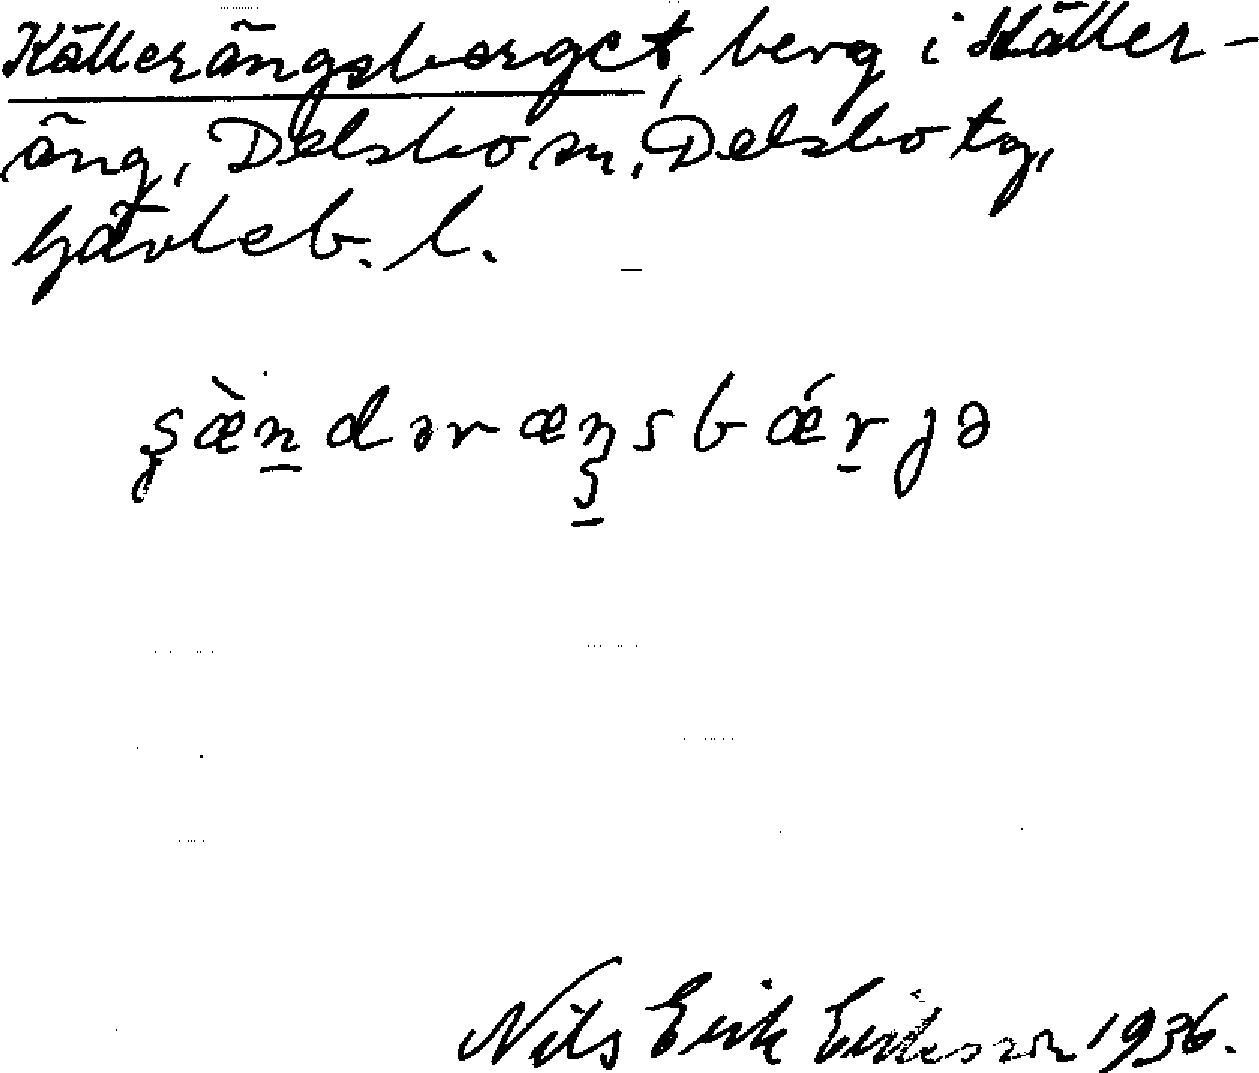 Källerängsberget, berg i Käller-
äng, Delsbo sn, Delsbo tg,
Gävleb. l.
Nils Erik Eriksson 1936.